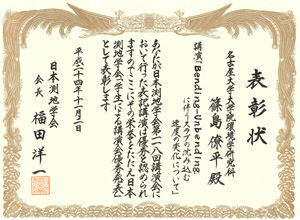 表彰状
名古屋大学大学院環境学研究科
篠島僚平殿
講演「Bending-Unbending
に伴うスラブの沈み込む
速度の変化について」
あなたが日本測地学会第一一八回講演会に
おいて行った表記講演は優秀と認められ
ますのでここにその栄誉をたたえ日本
測地学会「学生による講演会優秀発表」
として表彰します
平成二十四年十一月二日
日本測地学会
会長 福田洋一